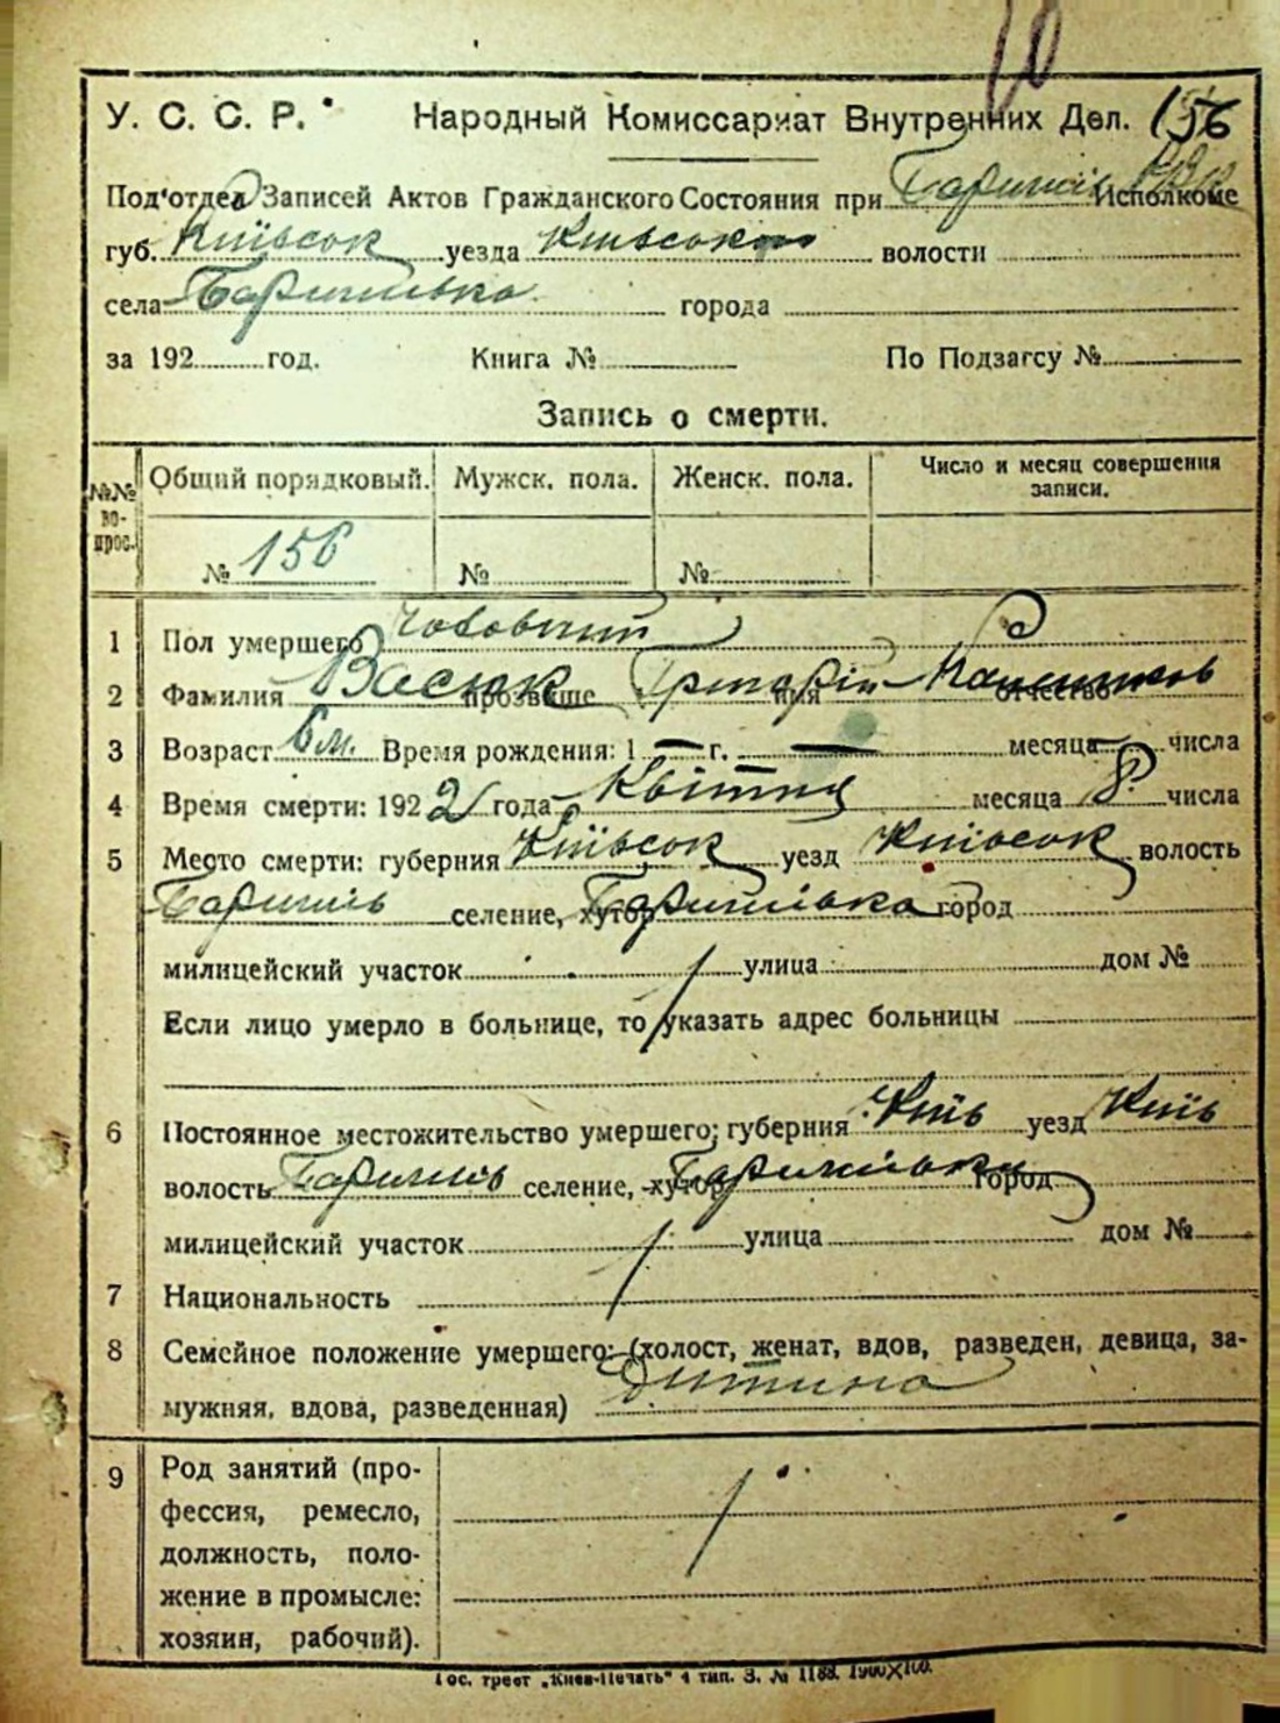 10
У. С. С. Р. Народный Комиссариат Внутренних Дел. 156
Под'отдел Записей Актов Гражданского Состояния при Баришів Исполкоме
губ. Київськ уезда Київського волости
села Баришівка города
за 192 год. Книга № По Подзагсу №
Запись о смерти.
№№ вопрос. Общий порядковый. Мужск. пола. Женск. пола. Число и месяц совершения записи.
№ 156 № №
1 Пол умершего чоловічий
2 Фамилия Васюк прозвище Григорій имя отчество
3 Возраст 6 м. Время рождения: 1 — г. — месяца числа
4 Время смерти: 1922 года Квітня месяца 8 числа
5 Место смерти: губерния Київськ уезд Київськ волость
Баришів селение, хутор Баришівка город
милицейский участок улица дом №
Если лицо умерло в больнице, то указать адрес больницы
6 Постоянное местожительство умершего; губерния Київ уезд Київ
волость Баришів селение, хутор Баришівка город
милицейский участок улица дом №
7 Национальность
8 Семейное положение умершего: (холост, женат, вдов, разведен, девица, за-
мужняя, вдова, разведенная) дитина
9 Род занятий (про-
фессия, ремесло,
должность, поло-
жение в промысле:
хозяин, рабочий).
Гос. трест „Киев-Печать" 4 тип. З. № 1188. 1900×100.